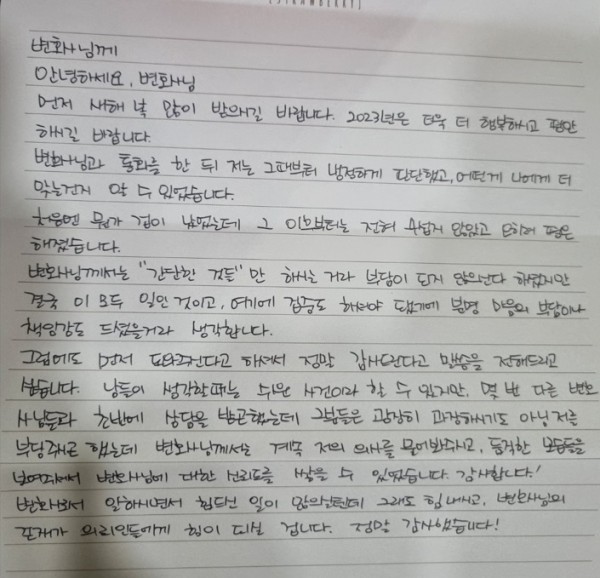 [STRAWBERRY]
변호사님께
안녕하세요, 변호사님
먼저 새해 복 많이 받으시길 바랍니다. 2023년은 더욱 더 행복하시고 평안
하시길 바랍니다.
변호사님과 통화를 한 뒤 저는 그때부터 냉정하게 판단했고, 어떤게 나에게 더
맞는건지 알 수 있었습니다.
처음엔 뭔가 겁이 났었는데 그 이후부터는 전혀 무섭지 않았고 오히려 평온
해졌습니다.
변호사님께서는 "간단한 것들"만 하시는 거라 부담이 되지 않으신다 하셨지만
결국 이 모두 일인 것이고, 여기에 검증도 하셔야 됐기에 분명 마음의 부담이나
책임감도 드셨을거라 생각합니다.
그럼에도 먼저 도와주신다고 하셔서 정말 감사드린다고 말씀을 전해드리고
싶습니다. 남들이 생각할때는 쉬운 사건이라 할 수 있지만, 몇 번 다른 변호
사님들과 초반에 상담을 받곤했는데 그분들은 굉장히 과장하시기도 아님 저를
부담주려고 했는데 변호사님께서는 계속 저의 의사를 물어봐주시고, 동작한 모습들을
보여주셔서 변호사님에 대한 신뢰도를 쌓을 수 있었습니다. 감사합니다!
변호사로서 일하시면서 힘드신 일이 많으실텐데 그래도 힘내시고, 변호사님의
존재가 의뢰인들에게 힘이 되실 겁니다. 정말 감사했습니다!